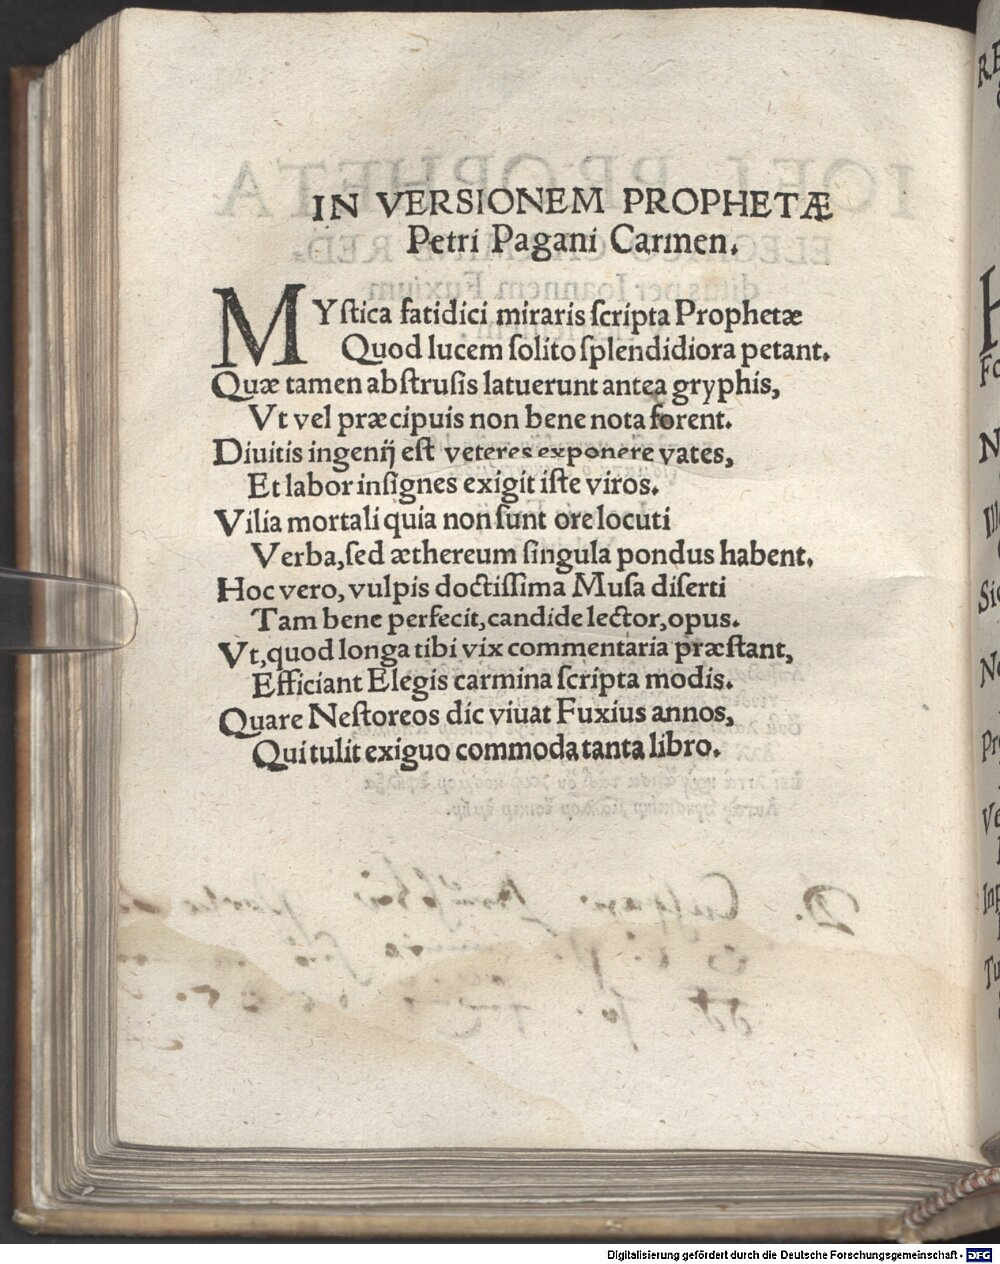 IN VERSIONEM PROPHETÆ
Petri Pagani Carmen.
MYſtica fatidici miraris ſcripta Prophetæ
Quod lucem ſolito ſplendidiora petant.
Quæ tamen abſtruſis latuerunt antea gryphis,
Vt vel præcipuis non bene nota forent.
Diuitis ingenij eſt veteres exponere vates,
Et labor inſignes exigit iſte viros.
Vilia mortali quia non ſunt ore locuti
Verba, ſed æthereum ſingula pondus habent.
Hoc vero, vulpis doctiſſima Muſa diſerti
Tam bene perfecit, candide lector, opus.
Vt, quod longa tibi vix commentaria præſtant,
Efficiant Elegis carmina ſcripta modis.
Quare Neſtoreos dic viuat Fuxius annos,
Qui tulit exiguo commoda tanta libro.
Digitalisierung gefördert durch die Deutsche Forschungsgemeinschaft - DFG